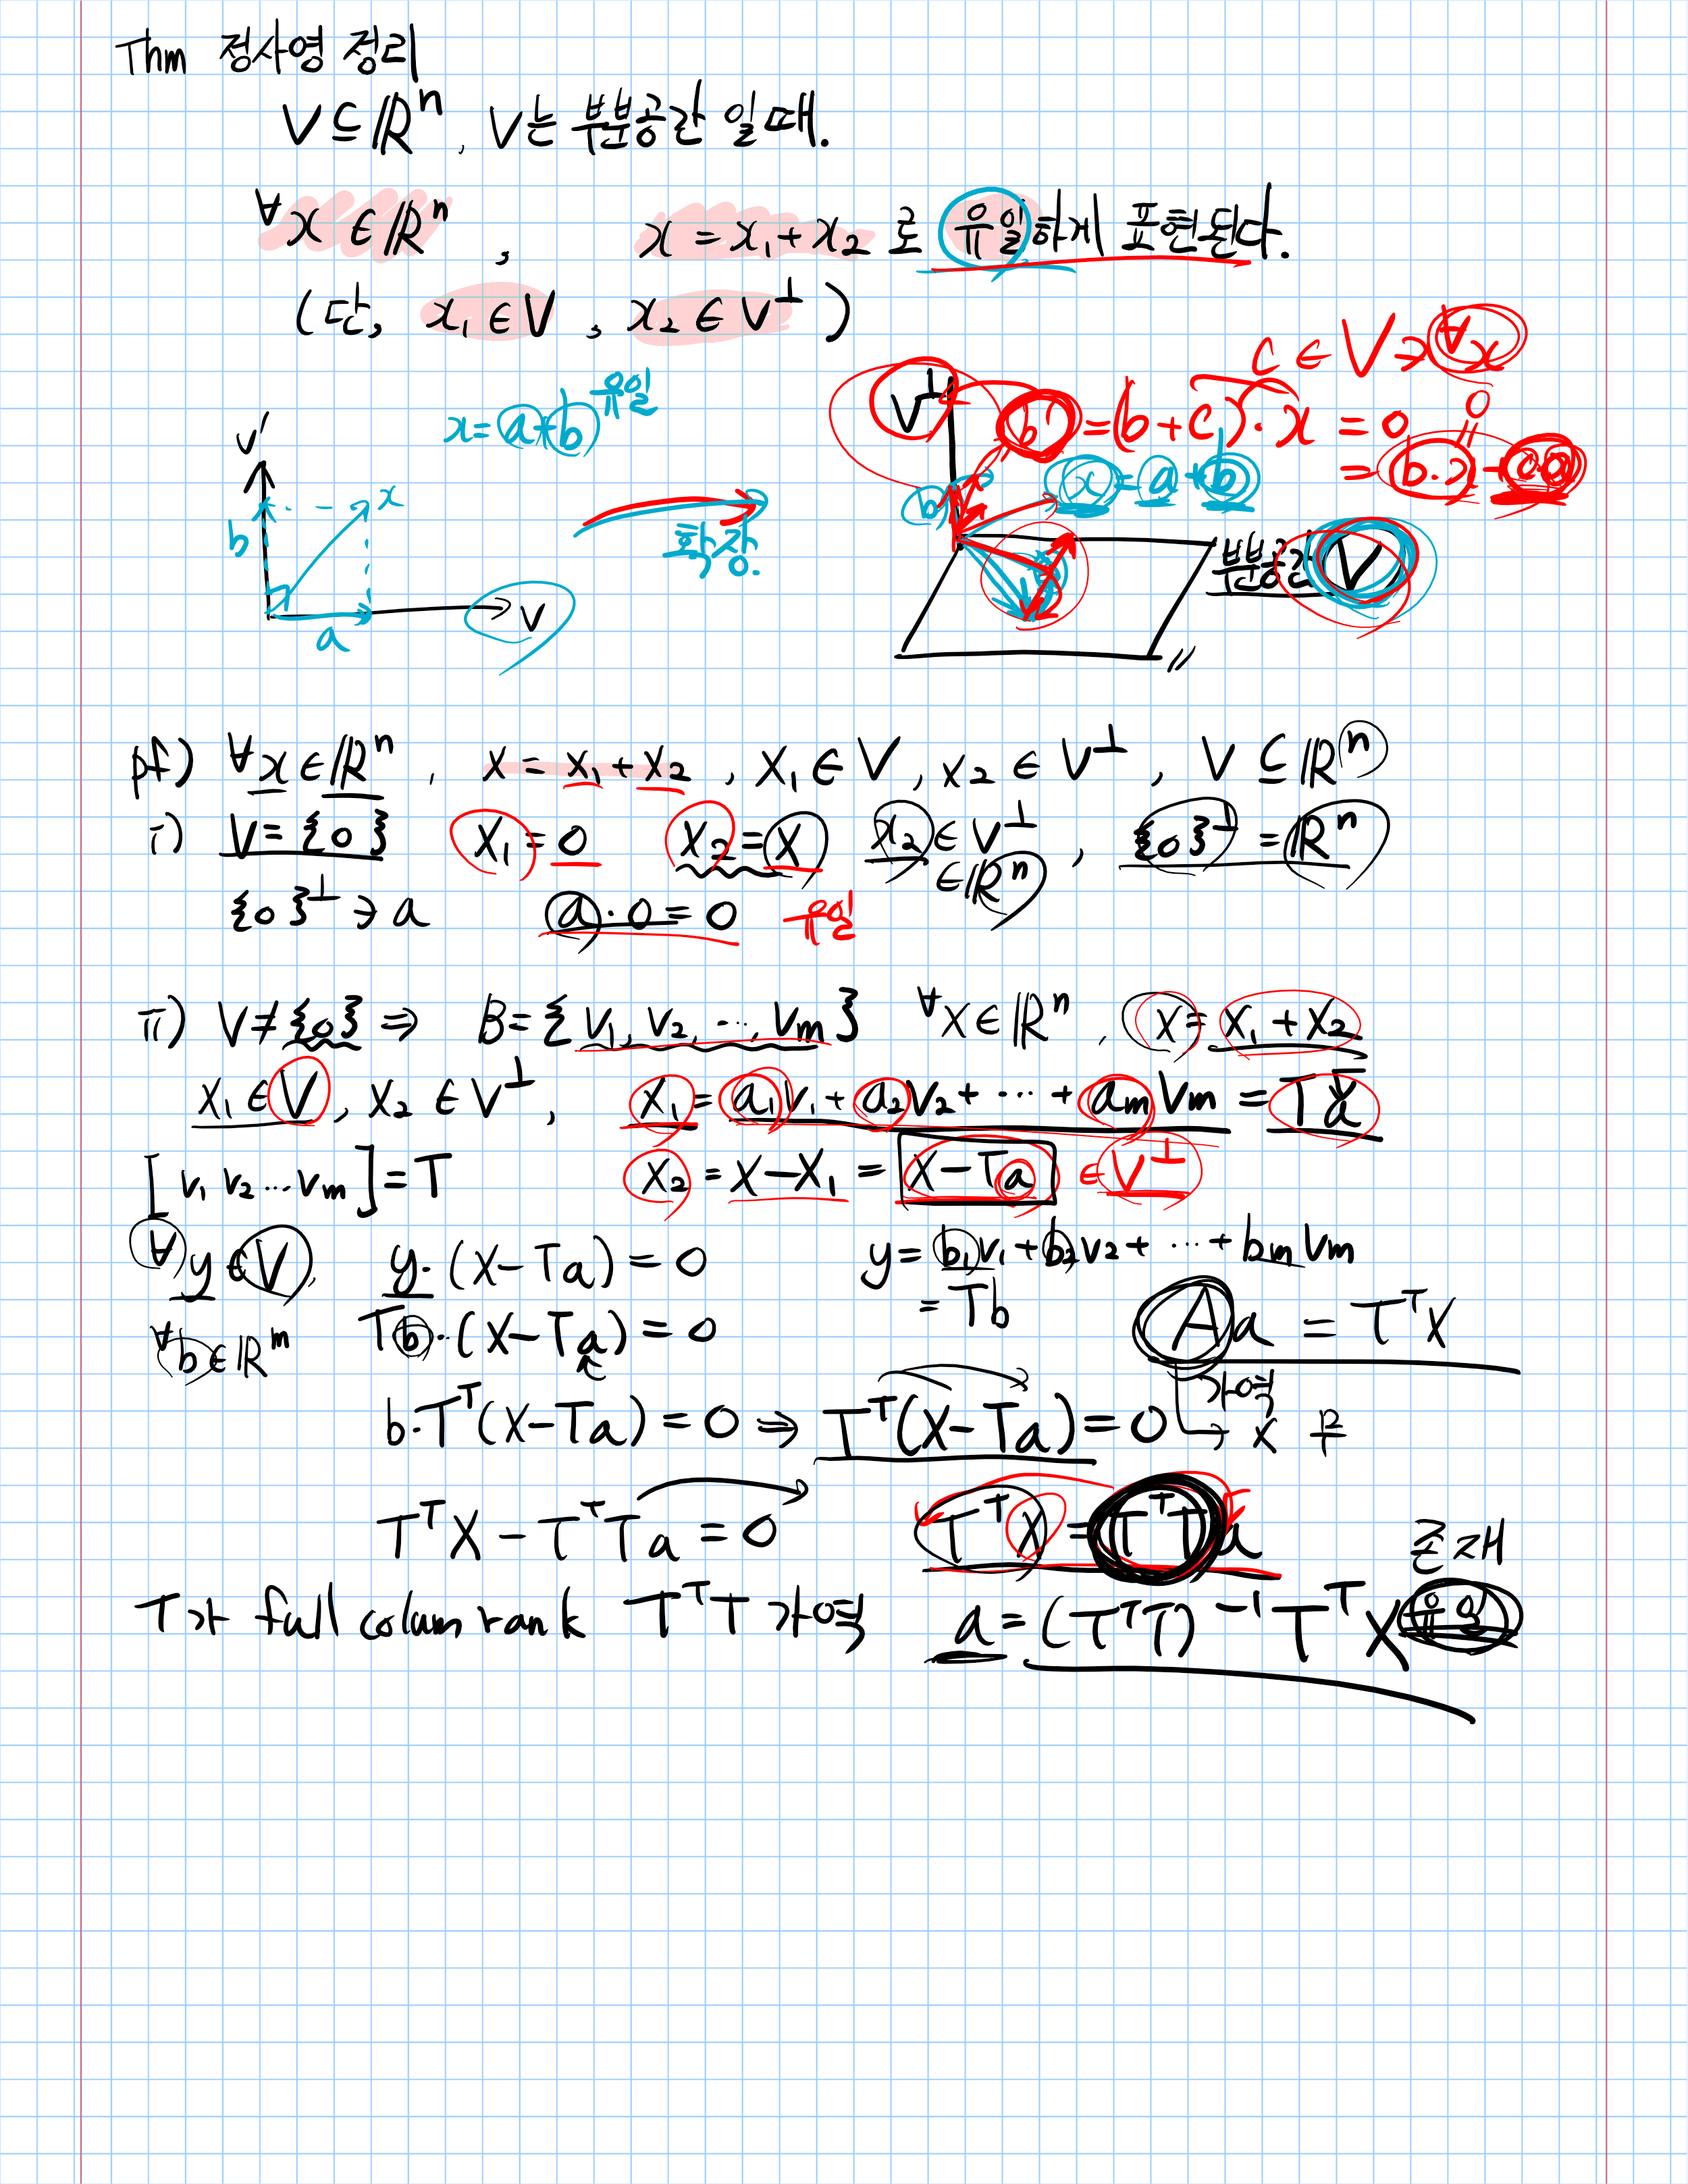 Thm 정사영 정리
V ⊆ ℝⁿ, V는 부분공간 일때.
∀x ∈ ℝⁿ, x = x₁ + x₂ 로 유일하게 표현된다.
(단, x₁ ∈ V, x₂ ∈ V⊥)
x = a + b 유일
V'
x
b
a
V
확장.
c ∈ V ∋ ∀x
V⊥
b' = (b + c) · x = 0
0
x = a + b
b
부분공간 V
pf) ∀x ∈ ℝⁿ, x = x₁ + x₂, x₁ ∈ V, x₂ ∈ V⊥, V ⊆ ℝⁿ
i) V = {0} x₁ = 0 x₂ = x x₂ ∈ V⊥, {0}⊥ = ℝⁿ
∈ ℝⁿ
{0}⊥ ∋ a a · 0 = 0 유일
ii) V ≠ {0} ⇒ B = {v₁, v₂, ..., vm} ∀x ∈ ℝⁿ, x = x₁ + x₂
x₁ ∈ V, x₂ ∈ V⊥, x₁ = a₁v₁ + a₂v₂ + ··· + amvm = Ta
[v₁ v₂ ... vm] = T x₂ = x − x₁ = x − Ta ∈ V⊥
∀y ∈ V, y · (x − Ta) = 0 y = b₁v₁ + b₂v₂ + ··· + bmvm
= Tb
∀b ∈ ℝᵐ Tb · (x − Ta) = 0 Aa = TᵀX
가역
b · Tᵀ(x − Ta) = 0 ⇒ Tᵀ(x − Ta) = 0 → x 무
TᵀX − TᵀTa = 0 TᵀX = TᵀTa 존재
T가 full colum rank TᵀT 가역 a = (TᵀT)⁻¹TᵀX 유일